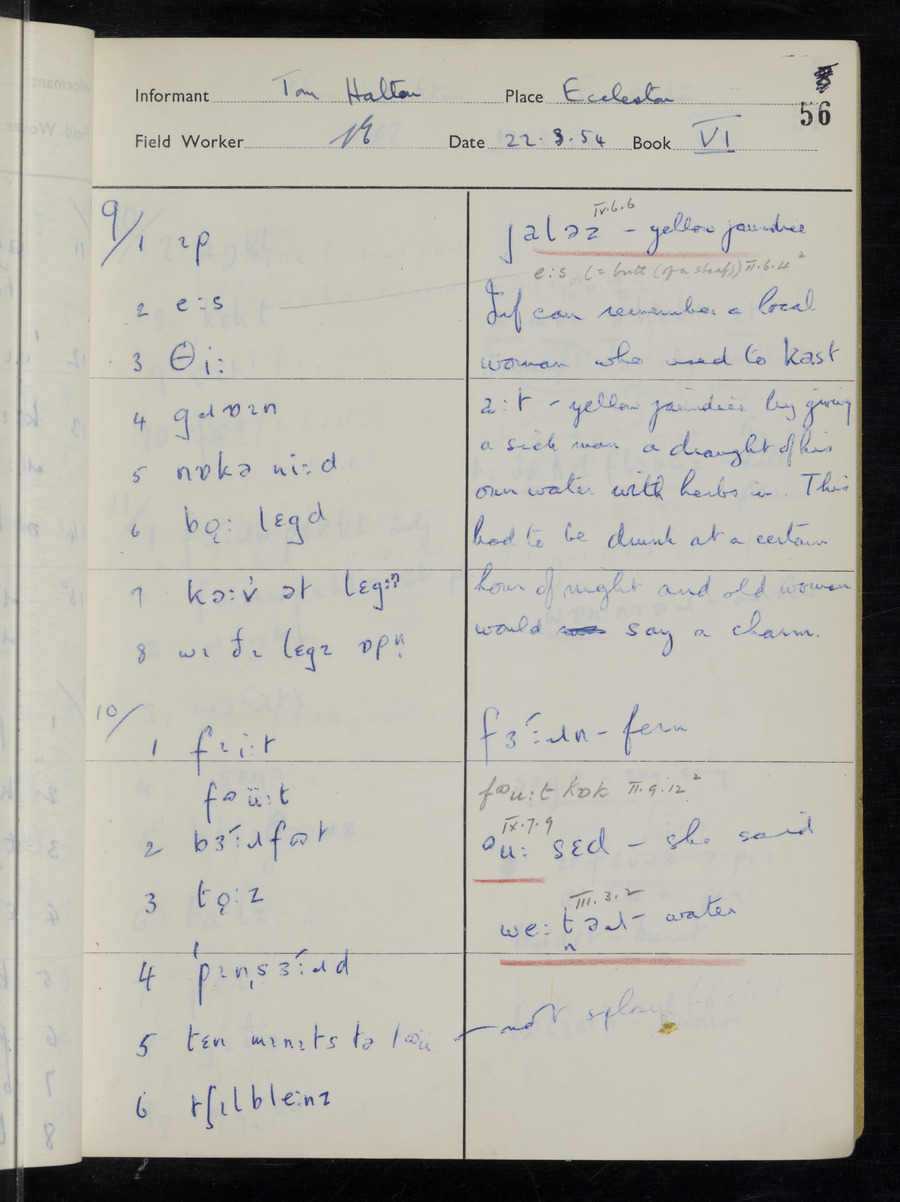 Informant Tom Halton Place Eccleston
56
Field Worker Date 22.3.54 Book VI
9/
1 ɪp
2 e:s
3 θi:
4 gɹɒɪn
5 nɒkə ni:d
6 bǫ: lɛgd
7 ət lɛg
8 wɪ ðɪ lɛgz ɒpn̩
10/
1 fɪi:t
fᴔü:t
2 bɜ́:ɹfᴔt
3 tǫ:z
4 'pɪn,sɜ́:ɹd
5 tɛn mɪnɪts tə tᴔü
6 tʃɪlbleɪnz
IV.6.6
jaləz – yellow jaundice
e:s (= butt (of a sheaf)) II.6.4²
Inf can remember a local
woman who used to kast
a:t – yellow jaundice by giving
a sick man a draught of his
own water with herbs in. This
had to be drunk at a certain
hour of night and old woman
would say a charm.
fɜ́:ɹn – fern
fᴔu:t kɒk II.9.12²
IX.7.9
ᴔu: sɛd – she said
III.3.2
we:təɹ – water
not splayed